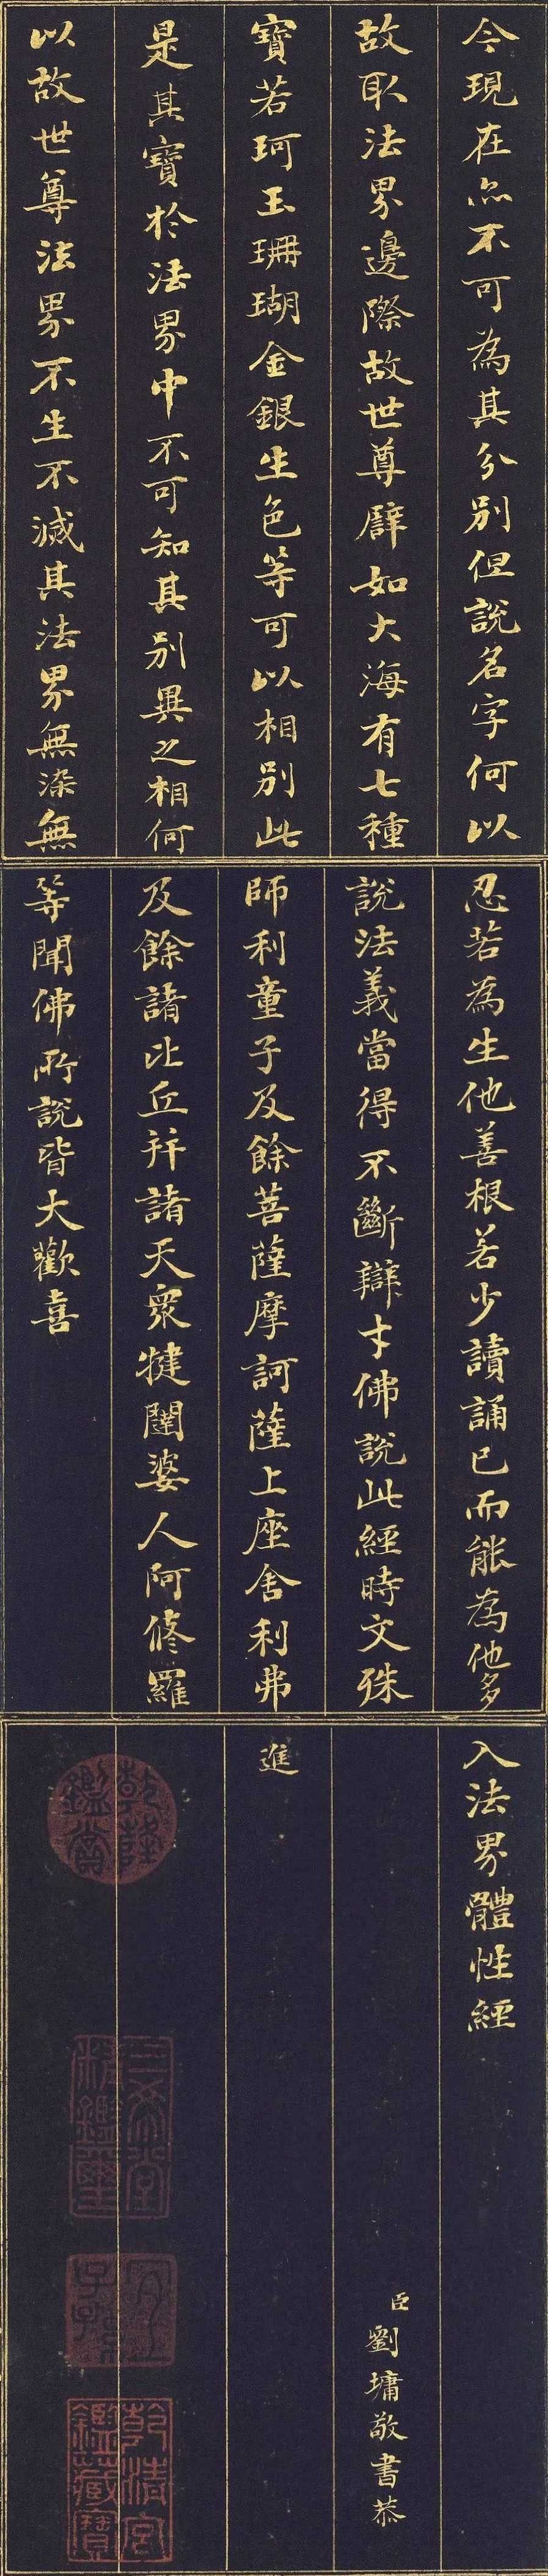 今現在亦不可為其分別但說名字何以
故取法界邊際故世尊譬如大海有七種
寶若珂玉珊瑚金銀生色等可以相別此
是其寶於法界中不可知其別異之相何
以故世尊法界不生不滅其法界無染無
忍若為生他善根若少讀誦已而能為他多
說法義當得不斷辯才佛說此經時文殊
師利童子及餘菩薩摩訶薩上座舍利弗
及餘諸比丘并諸天眾犍闥婆人阿修羅
等聞佛所說皆大歡喜
入法界體性經
臣劉墉敬書恭
進
乾隆鑑賞
三希堂精鑑璽
宜子孫
乾清宮鑑藏寶